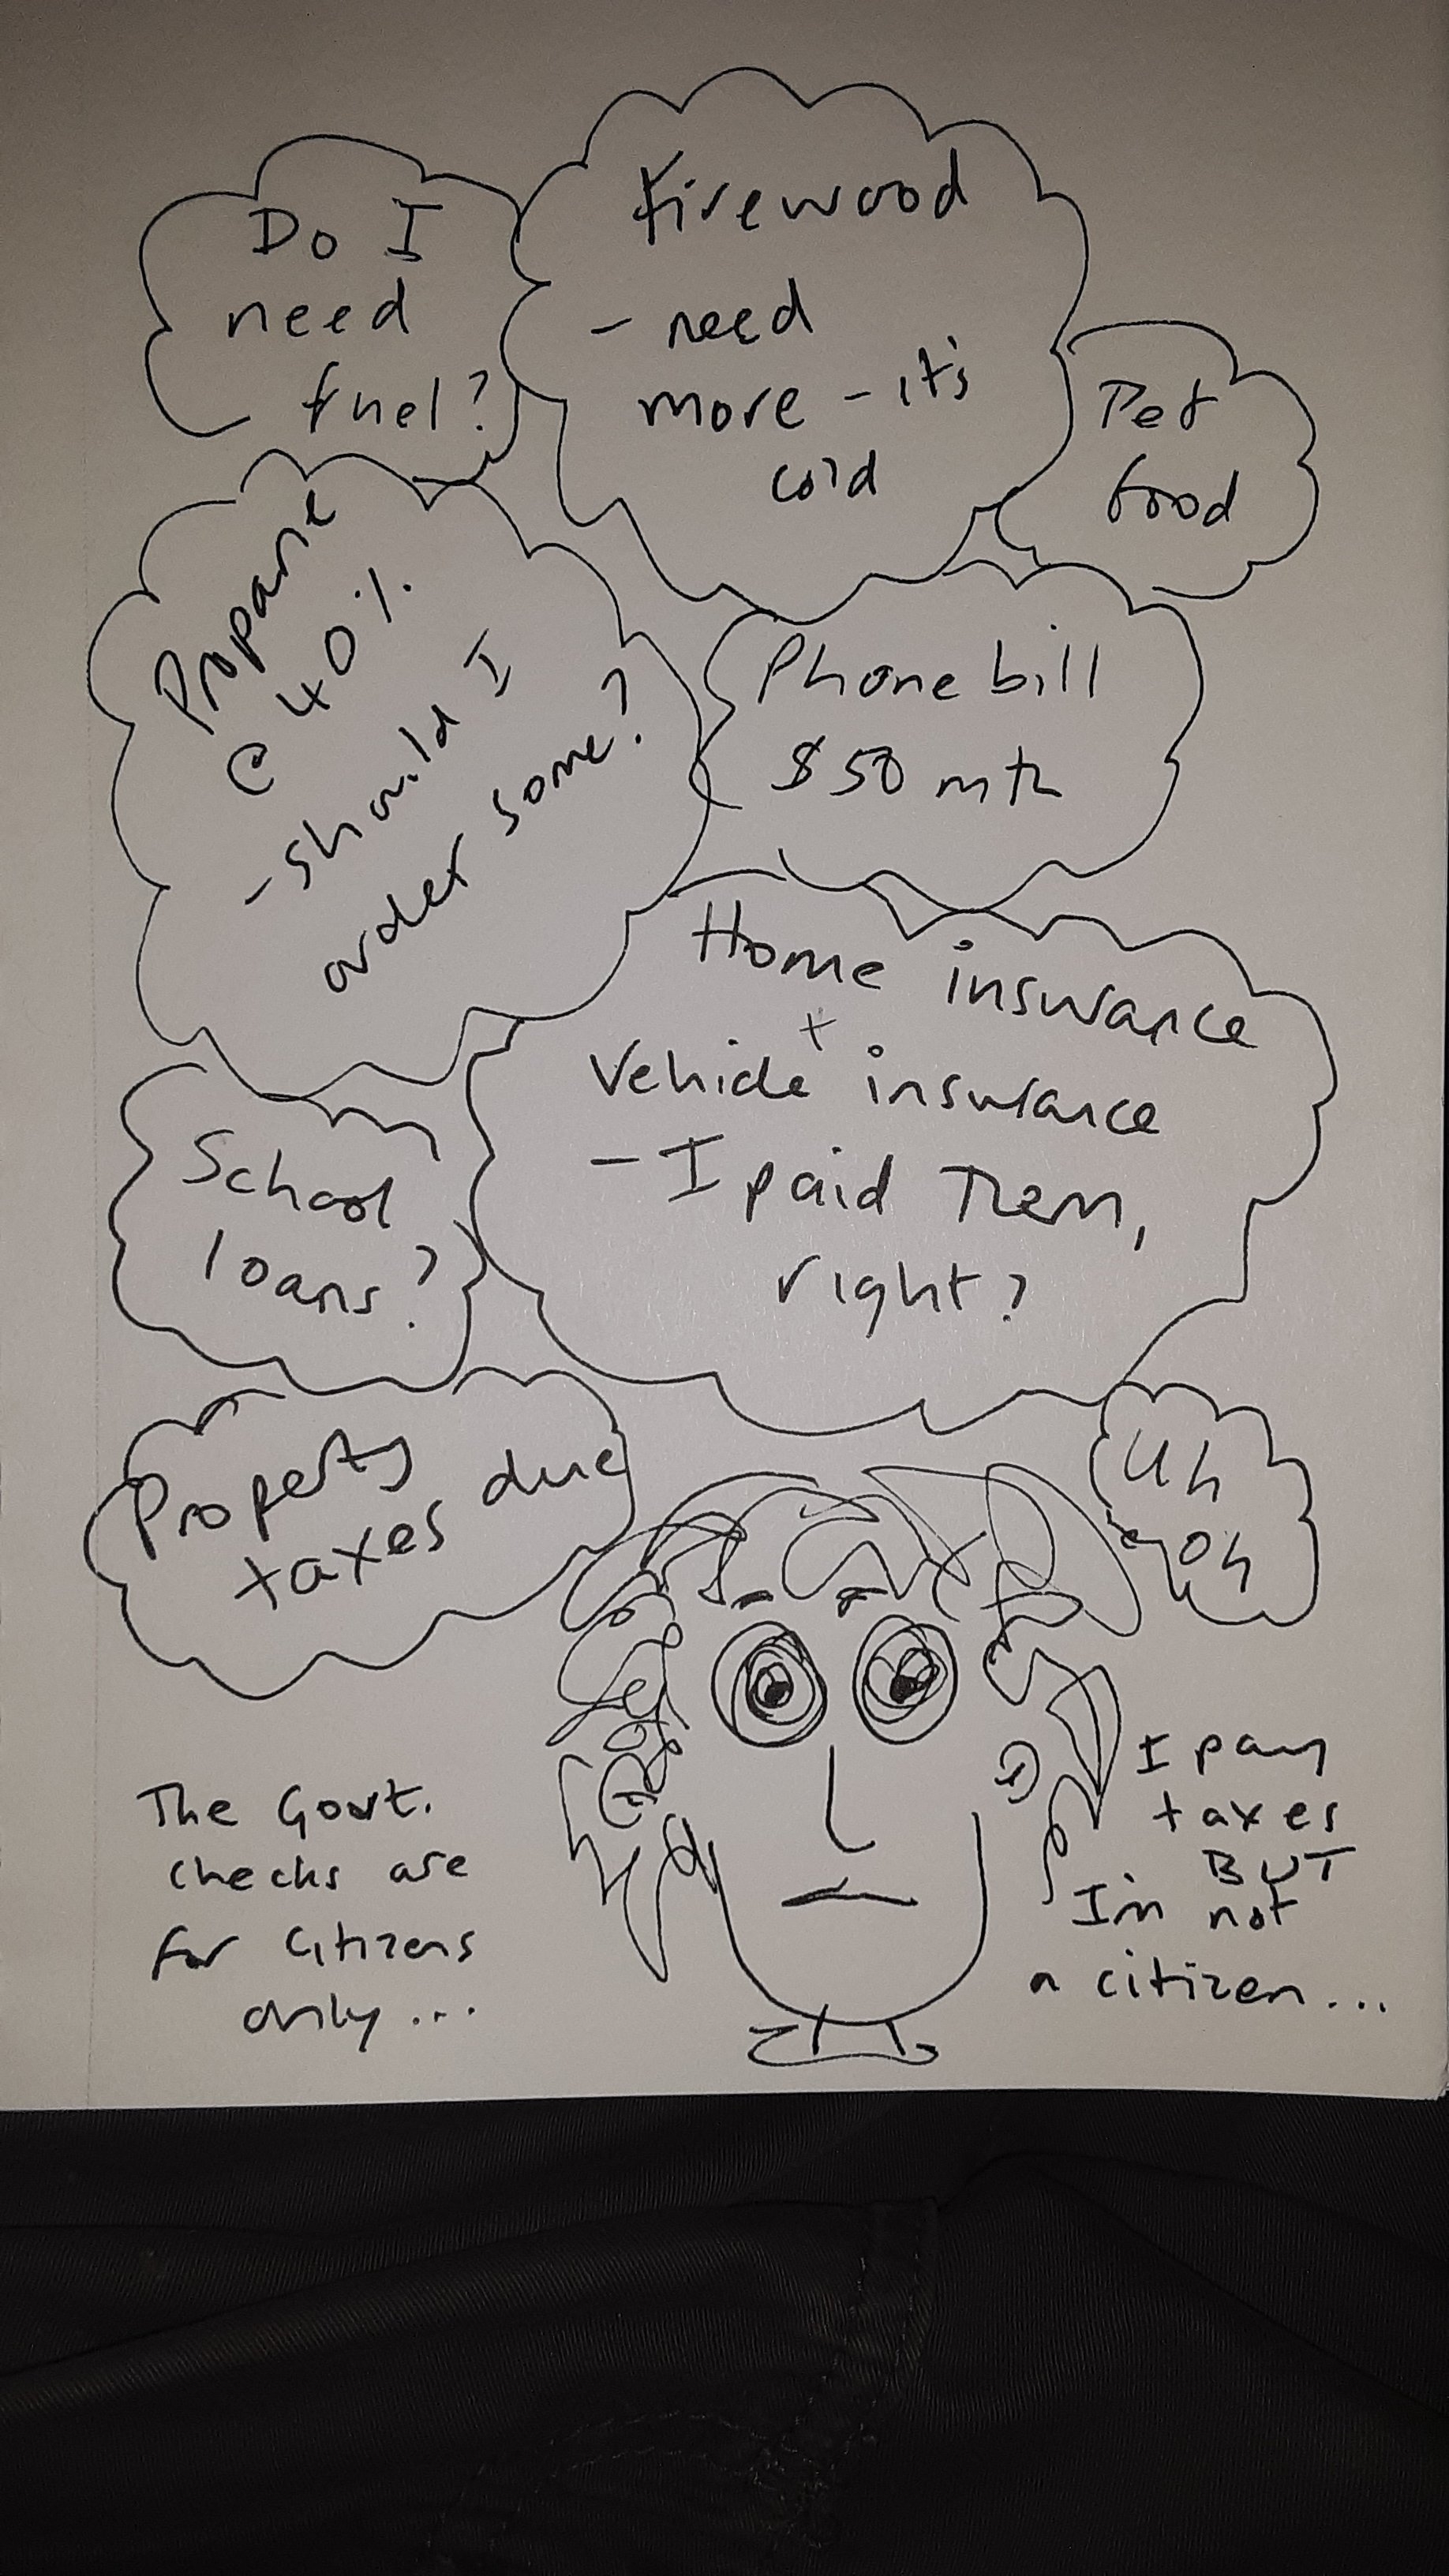 Do I
need
fuel?
Firewood
- need
more - it's
cold
Pet
food
Propane
@ 40%
- should I
order some?
Phone bill
$50 mth
Home insurance
+
Vehicle insurance
- I paid them,
right?
School
loans?
Property
taxes due
Uh
oh
The Govt.
checks are
for citizens
only...
I pay
taxes
BUT
I'm not
a citizen...